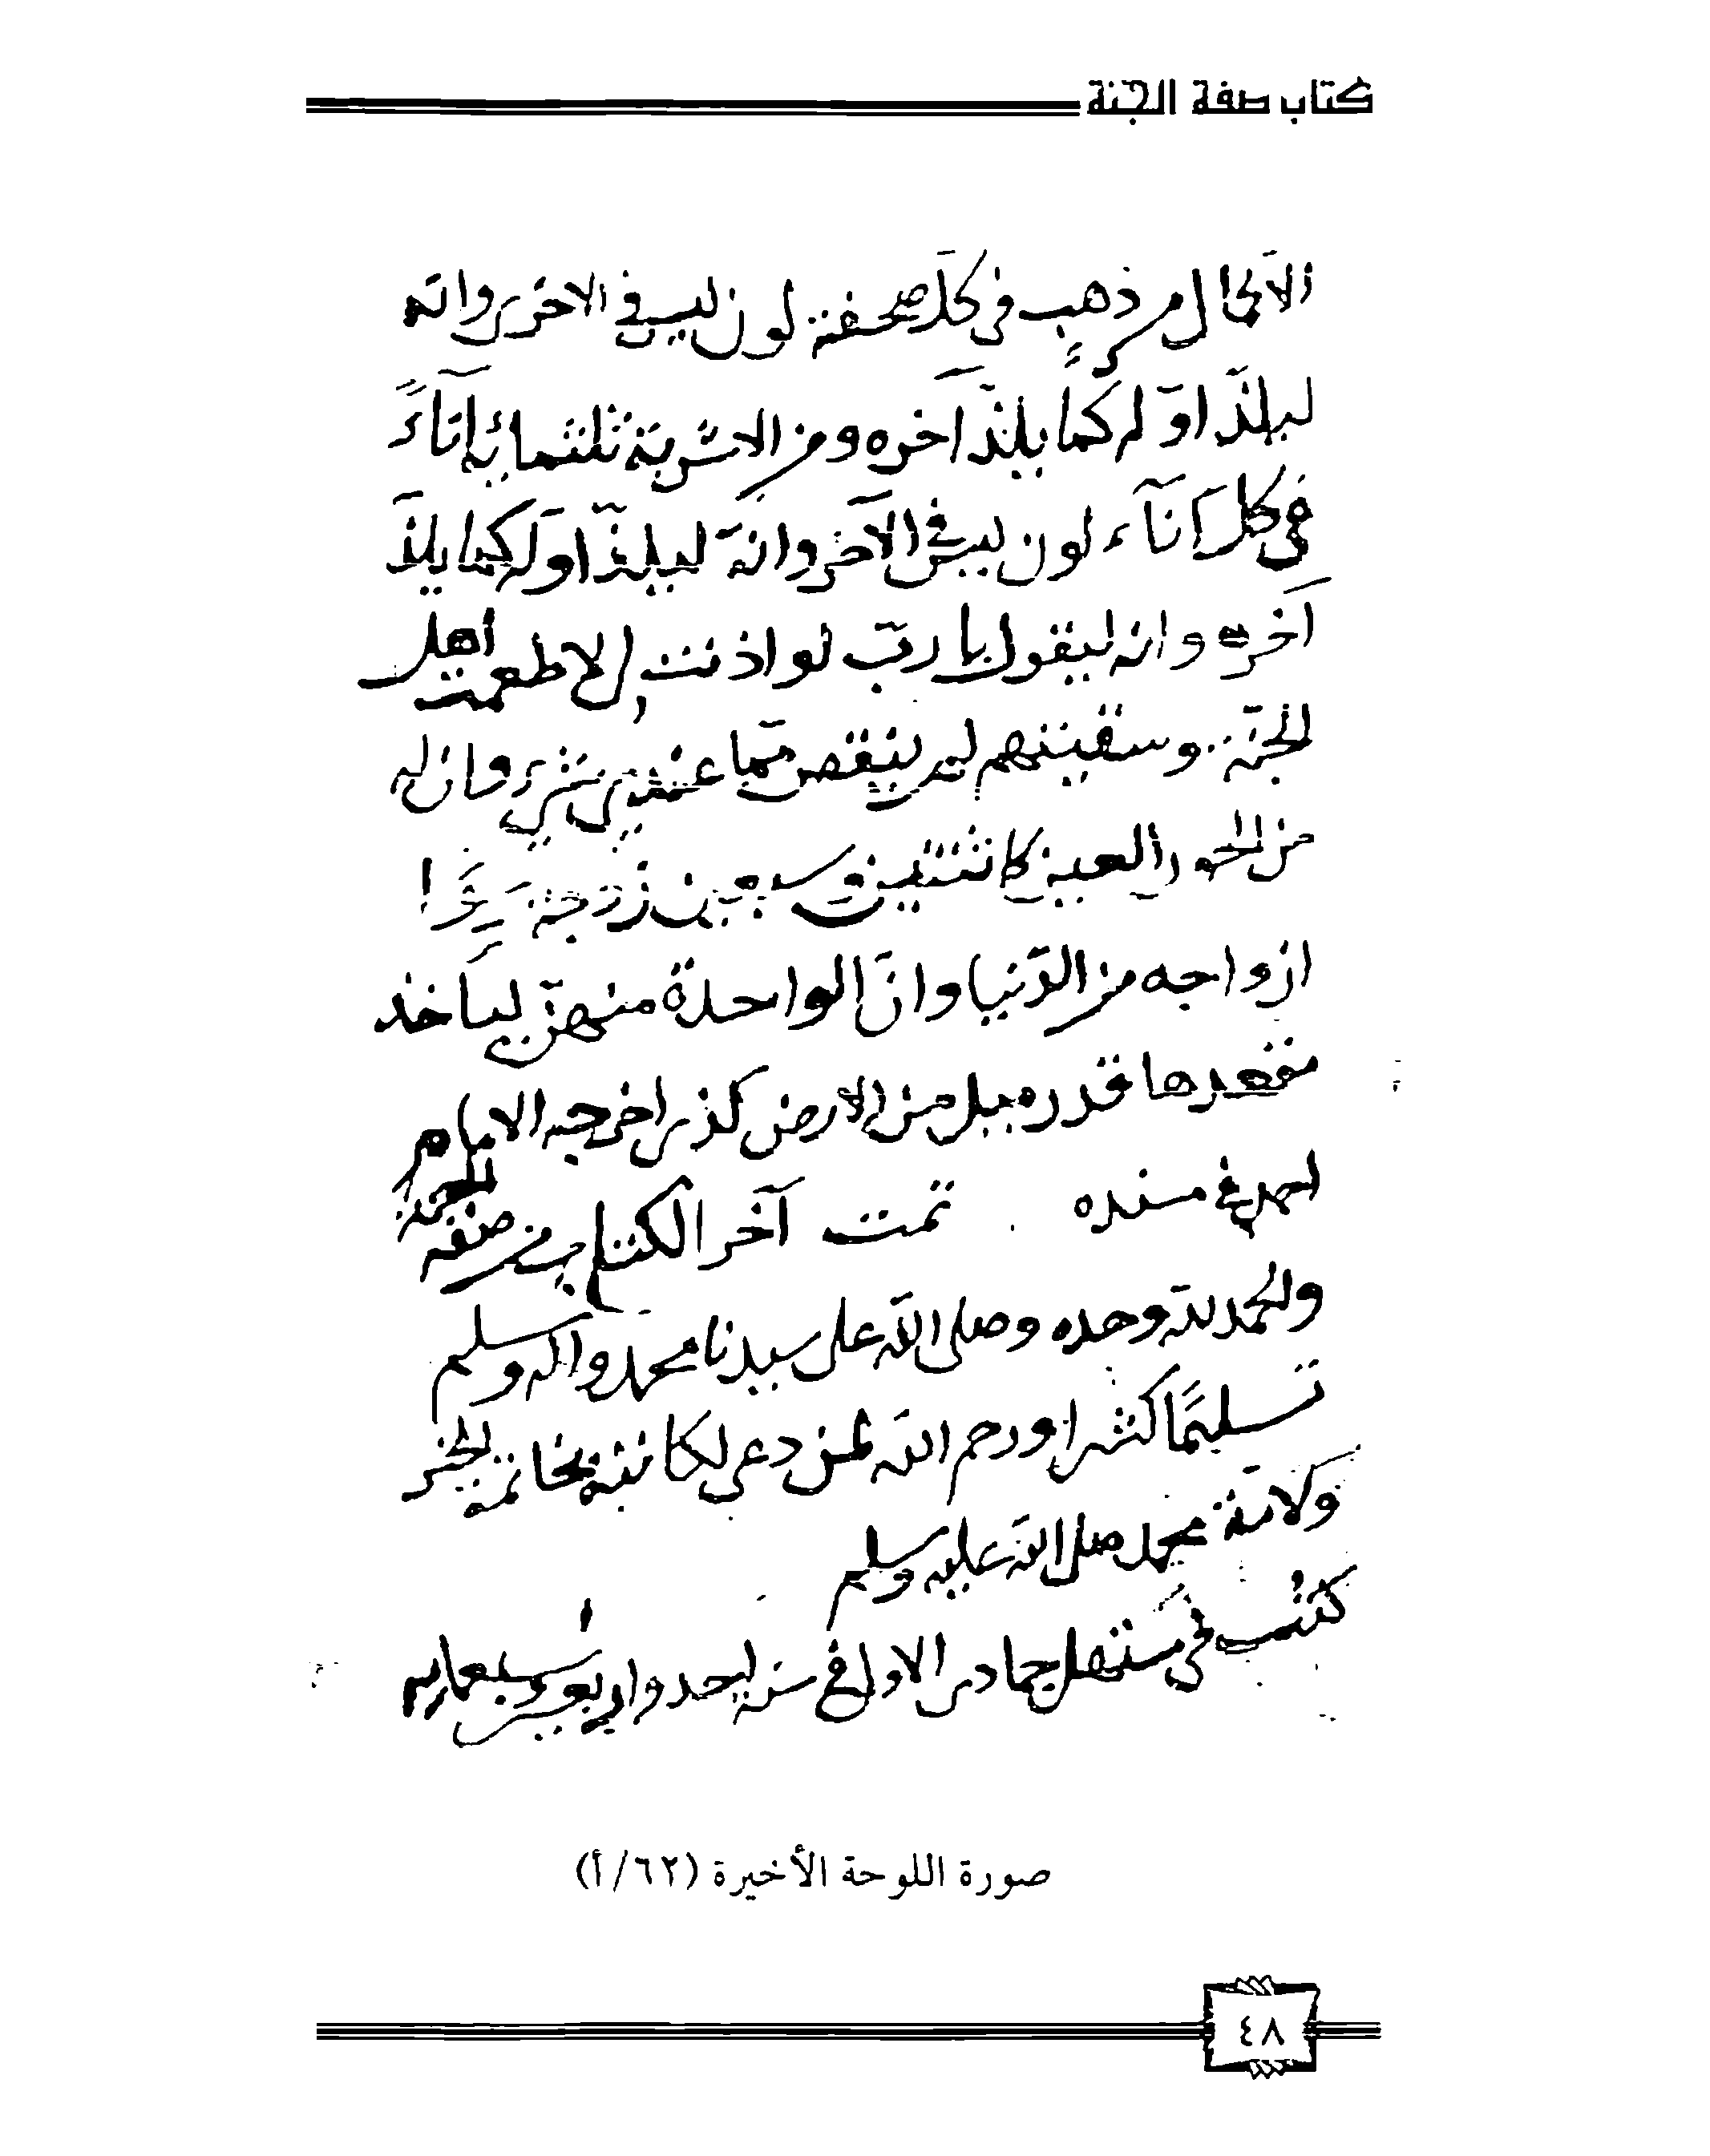 كتاب صفة الجنة
الا قال من ذهب في كل صحفة لون ليس في الاخرى وانه
ليلذّ اوّله كما يلذّ آخره ومن الاشربة ثلثمائة اناءً
في كل اناآء لون ليس في الآخر وانه ليلذّ اوله كما يلذّ
آخره وانه ليقول يا ربّ لو اذنت لي لاطعمت اهل
الجنّة وسقيتهم لم ينقص ممّا عندي شيء وان له
من الحور العين لاثنتين وسبعين زوجة سوا
ازواجه من الدّنيا وانّ الواحدة منهنّ لياخذ
مقعدها قدر ميل من الارض كذى اخرجه الامام
احمد في مسنده تمت آخر الكتاب من صفة الجنة
والحمد لله وحده وصلى الله على سيدنا محمد واله وسلم
تسليمًا كثيرا ورحم الله لمن دعى لكاتبه بخاتمة الخير
ولامة محمد صلى الله عليه وسلم
كتب في مستهل جمادى الاول في سنة احد واربعين وسبعمايه
صورة اللوحة الأخيرة (٦٢/أ)
٤٨